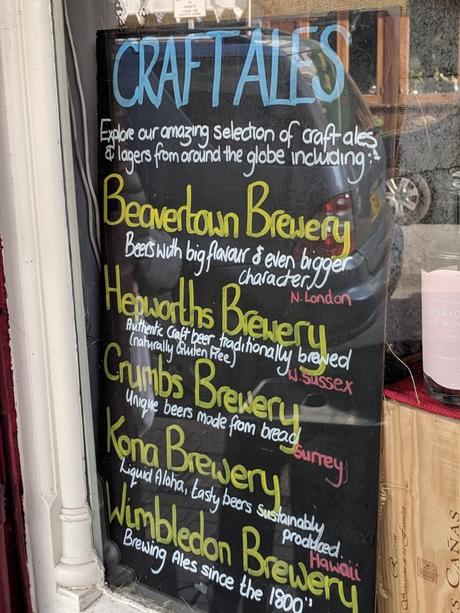 CRAFT ALES
Explore our amazing selection of craft ales
& lagers from around the globe including:
Beavertown Brewery
Beers with big flavour & even bigger
character
N. London
Hepworths Brewery
Authentic Craft beer, traditionally brewed
(naturally Gluten Free)
W. Sussex
Crumbs Brewery
Unique beers made from bread
Surrey
Kona Brewery
Liquid Aloha, tasty beers sustainably
produced.
Hawaii
Wimbledon Brewery
Brewing Ales since the 1800's
& SON
CAÑAS